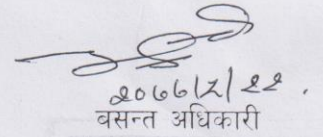 २०७७/२/२२.
वसन्त अधिकारी